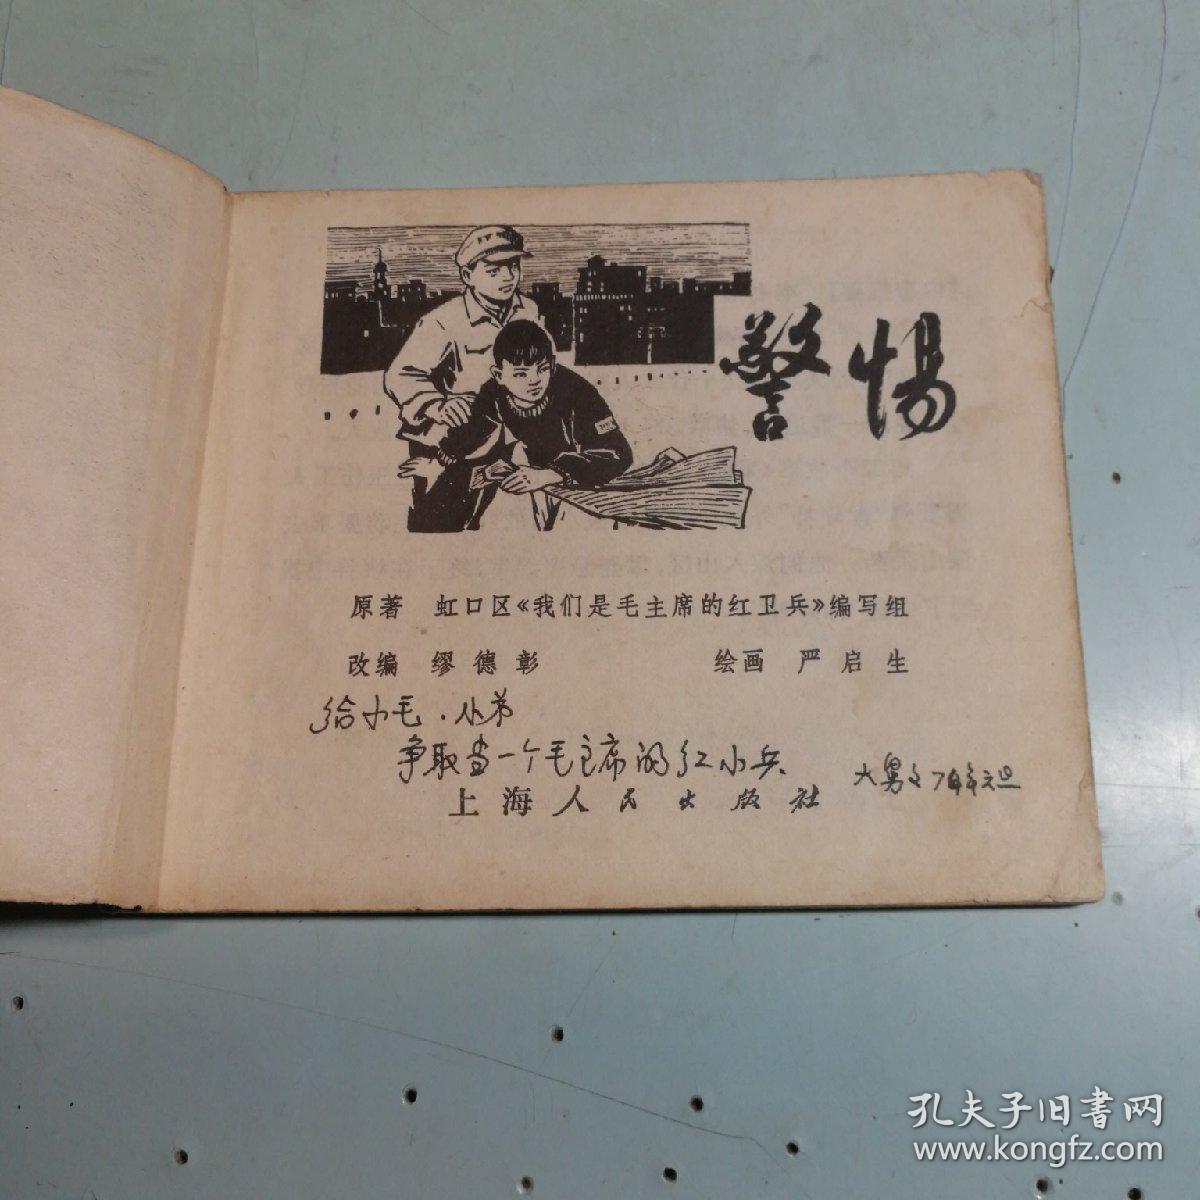 警惕
原著 虹口区《我们是毛主席的红卫兵》编写组
改编 缪德彰 绘画 严启生
给小毛．小弟
争取当一个毛主席的红小兵
大舅 74年元旦
上海人民出版社
孔夫子旧書网
www.kongfz.com